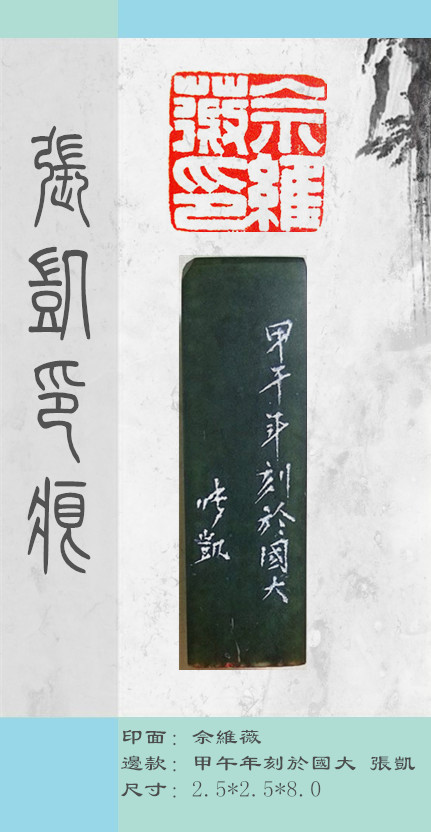 張凱印痕
佘維
薇印
甲午年刻於國大
張凱
印面：佘維薇
邊款：甲午年刻於國大 張凱
尺寸：2.5*2.5*8.0